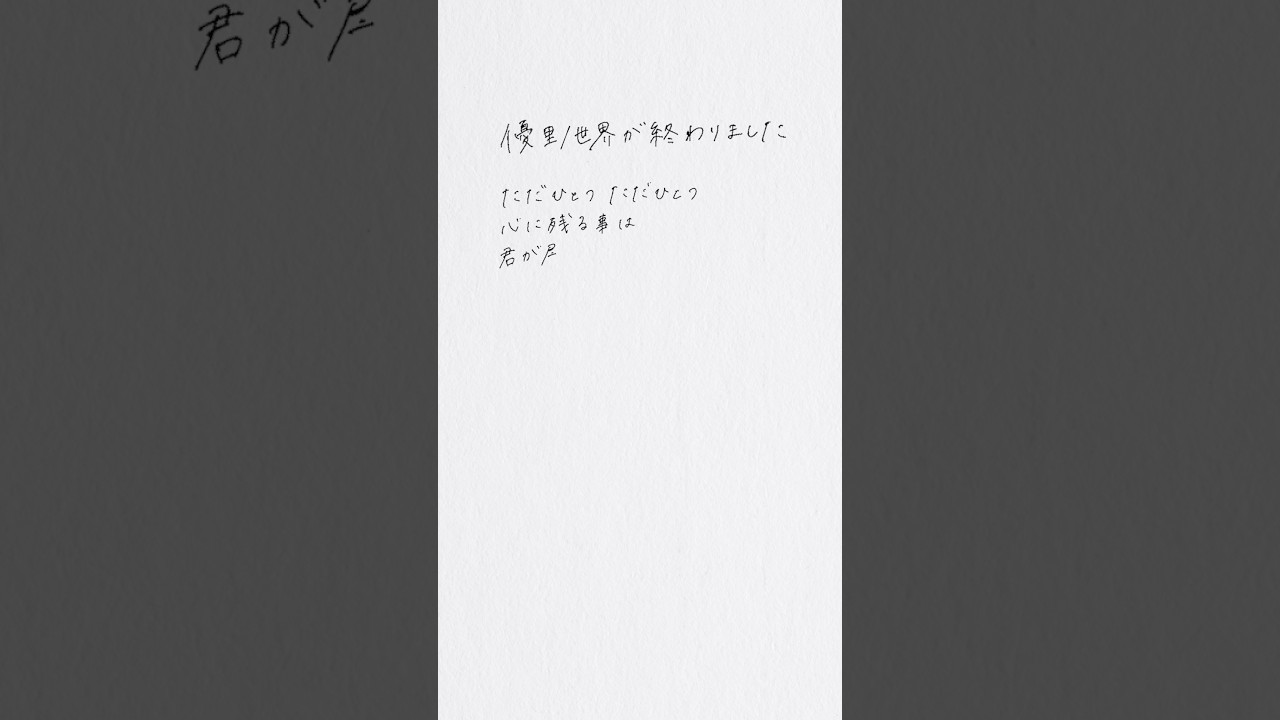 君が
優里/世界が終わりました
ただひとつ ただひとつ
心に残る事は
君が